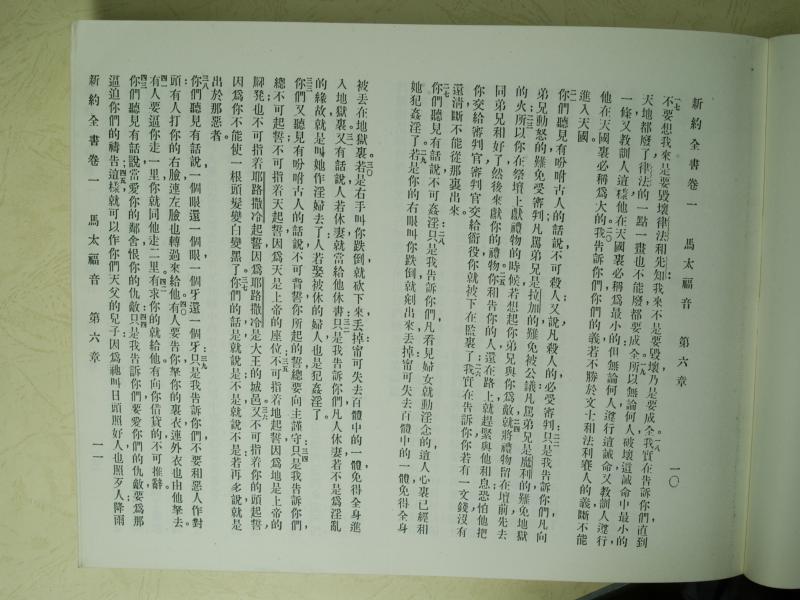 新約全書卷一 馬太福音 第六章 一〇
一七不要想我來是要毀壞律法和先知我來不是要毀壞乃是要成全一八我實在告訴你們直到
天地都廢了律法的一點一畫也不能廢都要成全一九所以無論何人破壞這誡命中最小的
一條又教訓人這樣他在天國裏必稱爲最小的但無論何人遵行這誡命又教訓人遵行
他在天國裏必稱爲大的二〇我告訴你們你們的義若不勝於文士和法利賽人的義斷不能
進入天國
二一你們聽見有吩咐古人的話說不可殺人又說凡殺人的必受審判二二只是我告訴你們凡向
弟兄動怒的難免受審判凡罵弟兄是拉加的難免被公議凡罵弟兄是魔利的難免地獄
的火二三所以你在祭壇上獻禮物的時候若想起你弟兄與你爲敵二四就將禮物留在壇前先去
同弟兄和好了然後來獻你的禮物二五你和告你的人還在路上就趕緊與他和息恐怕他把
你交給審判官審判官交給衙役你就被下在監裏了二六我實在告訴你你若有一文錢沒有
還清斷不能從那裏出來
二七你們聽見有話說不可姦淫二八只是我告訴你們凡看見婦女就動淫念的這人心裏已經和
她犯姦淫了二九若是你的右眼叫你跌倒就剜出來丟掉甯可失去百體中的一體免得全身
被丟在地獄裏三〇若是右手叫你跌倒就砍下來丟掉甯可失去百體中的一體免得全身進
入地獄裏三一又有話說人若休妻就當給他休書三二只是我告訴你們凡人休妻若不是爲淫亂
的緣故就是叫她作淫婦去了人若娶被休的婦人也是犯姦淫了
三三你們又聽見有吩咐古人的話說不可背誓你所起的誓總要向主謹守三四只是我告訴你們
總不可起誓不可指着天起誓因爲天是上帝的座位三五不可指着地起誓因爲地是上帝的
腳凳也不可指着耶路撒冷起誓因爲耶路撒冷是大王的城邑三六又不可指着你的頭起誓
因爲你不能使一根頭髮變白變黑了三七你們的話是就說是不是就說不是若再多說就是
出於那惡者
三八你們聽見有話說一個眼還一個眼一個牙還一個牙三九只是我告訴你們不要和惡人作對
有人打你的右臉連左臉也轉過來給他四〇有人要告你拏你的裏衣連外衣也由他拏去
四一有人要逼你走一里你就同他走二里四二有求你的就給他有向你借貸的不可推辭
四三你們聽見有話說當愛你的鄰舍恨你的仇敵四四只是我告訴你們要愛你們的仇敵要爲那
逼迫你們的禱告四五這樣就可以作你們天父的兒子因爲祂叫日頭照好人也照歹人降雨
新約全書卷一 馬太福音 第六章 一一